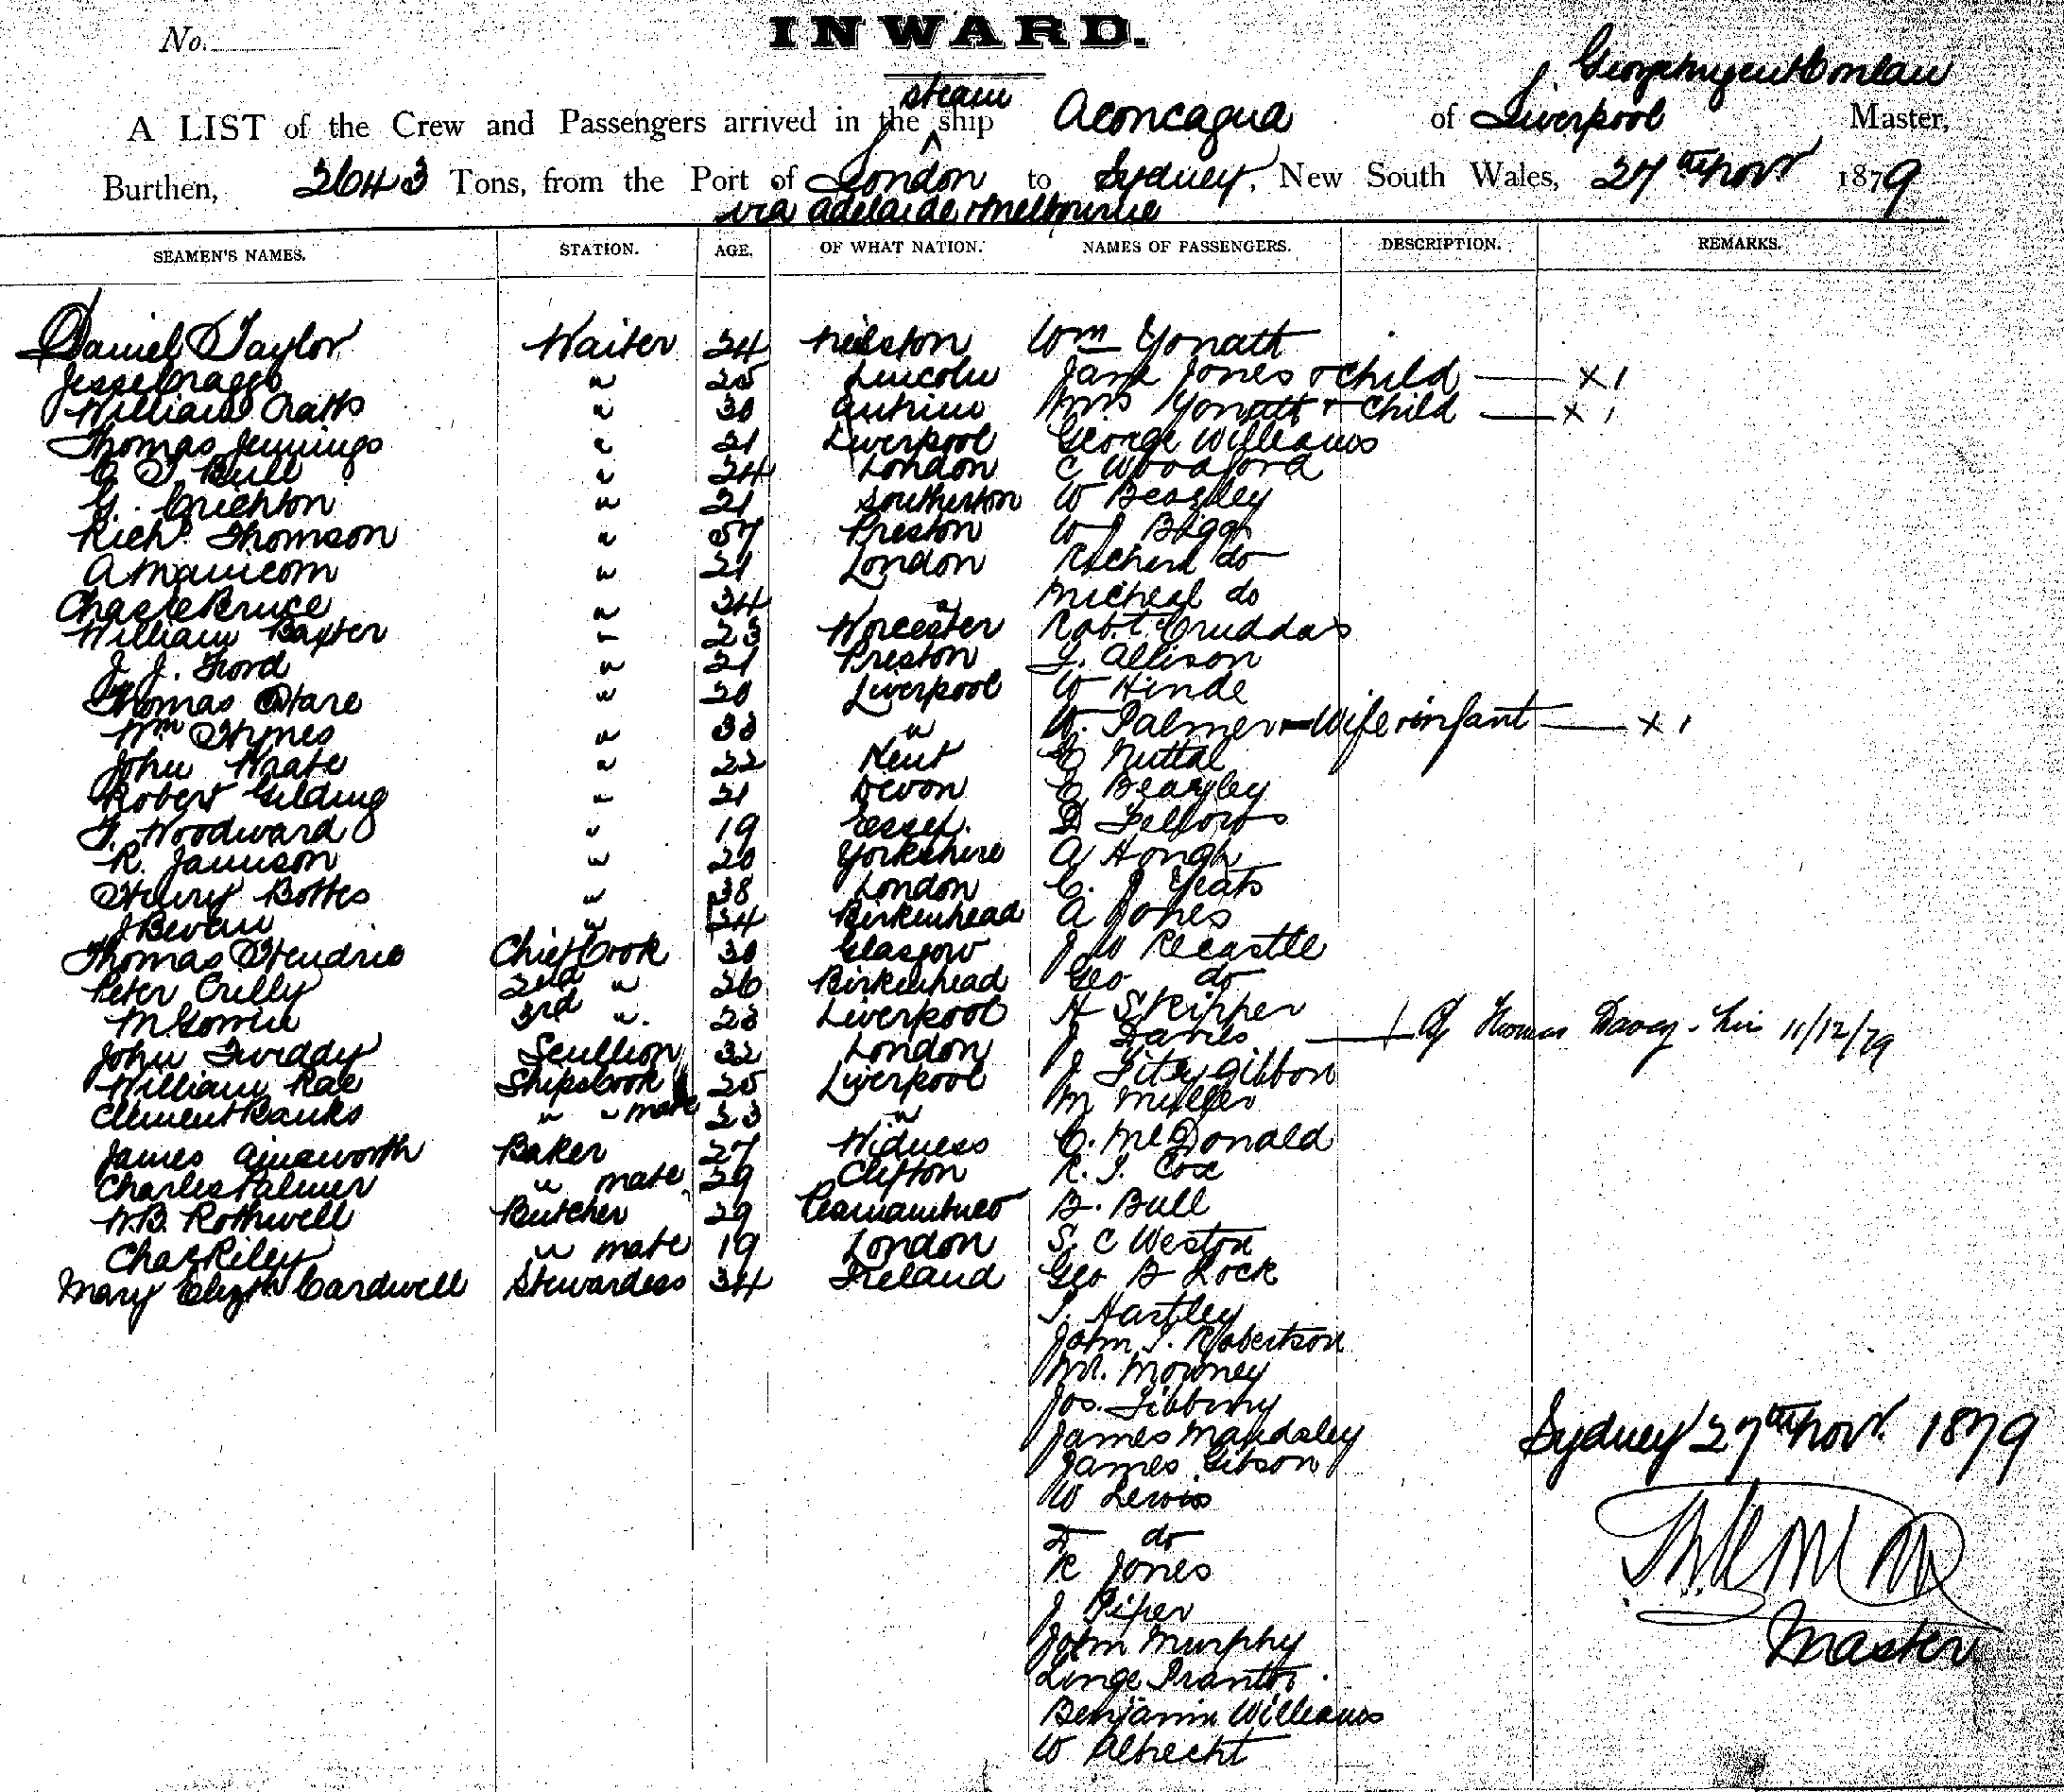 No.
INWARD.
steam
A LIST of the Crew and Passengers arrived in the ship Aconcagua of Liverpool Master,
Burthen, 2643 Tons, from the Port of London to Sydney, New South Wales, 27th Novr 1879
via Adelaide & Melbourne
SEAMEN'S NAMES. STATION. AGE. OF WHAT NATION. NAMES OF PASSENGERS. DESCRIPTION. REMARKS.
Daniel Taylor Waiter 24 Neilston Wm Yonatt
Jesse Craggs " 25 Lincoln Jane Jones & Child X 1
William Cratts " 30 Antrim Mrs Yonatt & Child X 1
Thomas Jennings " 21 Liverpool George Williams
Bull " 24 London C Woodford
G. Crichton " 21 W Beazley
Richd Thomson " 57 Preston W J Bligh
A Manicom " 21 London Richard do
Bruce " 34 " Micheal do
William Baxter " 23 Worcester Robt Cruddas
J. J. Ford " 21 Preston J. Allison
Thomas OHare " 20 Liverpool W Hinde
Wm Hynes " 33 " W. Palmer Wife & infant X 1
John Wrate " 22 Kent E Nuttal
Robert Gilding " 21 Devon E Beazley
F. Woodward " 19 Essex. D Fellows
R. Jamison " 20 Yorkshire A Hough
Henry Bottes " 38 London C. J Yeats
J Bevan " 34 Birkenhead A Jones
Thomas Hendrie Chief Cook 30 Glasgow J W Recastle
Peter Crilly 2nd " 26 Birkenhead Geo do
M Gowin 3rd ". 23 Liverpool H Skipper
John Tweddy Scullion 32 London J Davies Thomas 11/12/79
William Rae Ships Cook 25 Liverpool J Fitzgibbon
Clement Banks " " mate 23 " M Muller
James Ainsworth Baker 27 Widness C. McDonald
Charles Palmer " mate 29 Clifton R. J. Cox
W.B. Rothwell Butcher 29 Pernambuco B. Bull
Chas Riley " mate 19 London S. C Weston
Mary Elizth Cardwell Stewardess 34 Ireland Geo B Lock
T. Hartley
John T. Robertson
Mr. Mowney
Jos. Tibbury
James Mandsley
James Gibson
W Lewis
D do
R Jones
J Piper
John Murphy
Linge Trantor
Benjamin Williams
W Albrecht
Sydney 27th Novr. 1879
Master